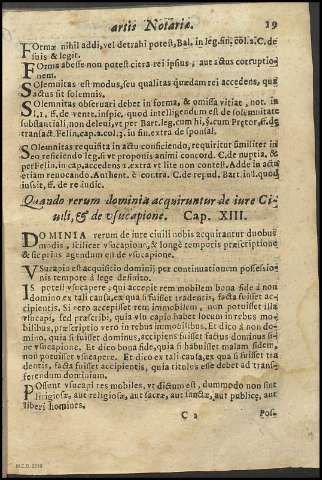 artis Notariæ. 19
Formæ nihil addi, vel detrahi potest, Bal. in leg. fin. col. 2. C. de
suis & legit.
Forma abesse non potest citra rei ipsius, aut actus corruptio
nem.
Solemnitas est modus, seu qualitas quædam rei accedens, quę
actus sit solemnis.
Solemnitas observari debet in forma, & omissa vitiat, not. in
l. 1. ff. de ventr. inspic. quod intelligendum est de solemnitate
substantiali, non de levi, vt per Bart. leg. cum hi, §. cum Prętor, ff. de
transact. Felin. cap. 2. col. 3. in fin. extra de sponsal.
Solemnitas requisita in actu conficiendo, requiritur similiter in
seo reficiendo leg. si vt proponis animi concord. C. de nuptia, &
per Felin. in cap. accedens 2. extra vt lite non contest. Adde in actu
etiam renouando. Anthent. è contra. C. de repud. Bart. in l. quod
iussit, ff. de re iudic.
Quando rerum dominia acquiruntur de iure Ci-
uili, & de vsucapione. Cap. XIII.
DOMINIA rerum de iure ciuili nobis acquirantur duobus
modis, scilicet vsucapione, & longè temporis præscriptione
& sic prius agendum est de vsucapione.
Vsucapio est acquisitio dominij per continuationem possessio
nis tempore á lege definito.
Is potest vsucapere, qui accepit rem mobilem bona fide á non
domino, ex tali causa, ex qua si fuisset tradentis, facta fuisset ac-
cipientis. Si vero accepisset rem immobilem, non potuisset illa
vsucapi, sed præscribi, quia vsucapio habet locum in rebus mo-
bilibus, præscriptio vero in rebus immobilibus. Et dico á non do-
mino, quia si fuisset dominus, accipiens fuisset factus dominus si-
ne vsucapione. Et dico bona fide, quia si habuisset malam fidem,
non potuisset vsucapere. Et dico ex tali causa, ex qua si fuisset tra
dentis, facta fuisset accipientis, quia titulus esse debet ad transf-
ferendum dominium.
Possunt vsucapi res mobiles, vt dictum est, dummodo non sint
religiosæ, aut religiosæ, aut sacræ, aut sanctæ, aut publicę, aut
liberi homines.
C 2 Pos-